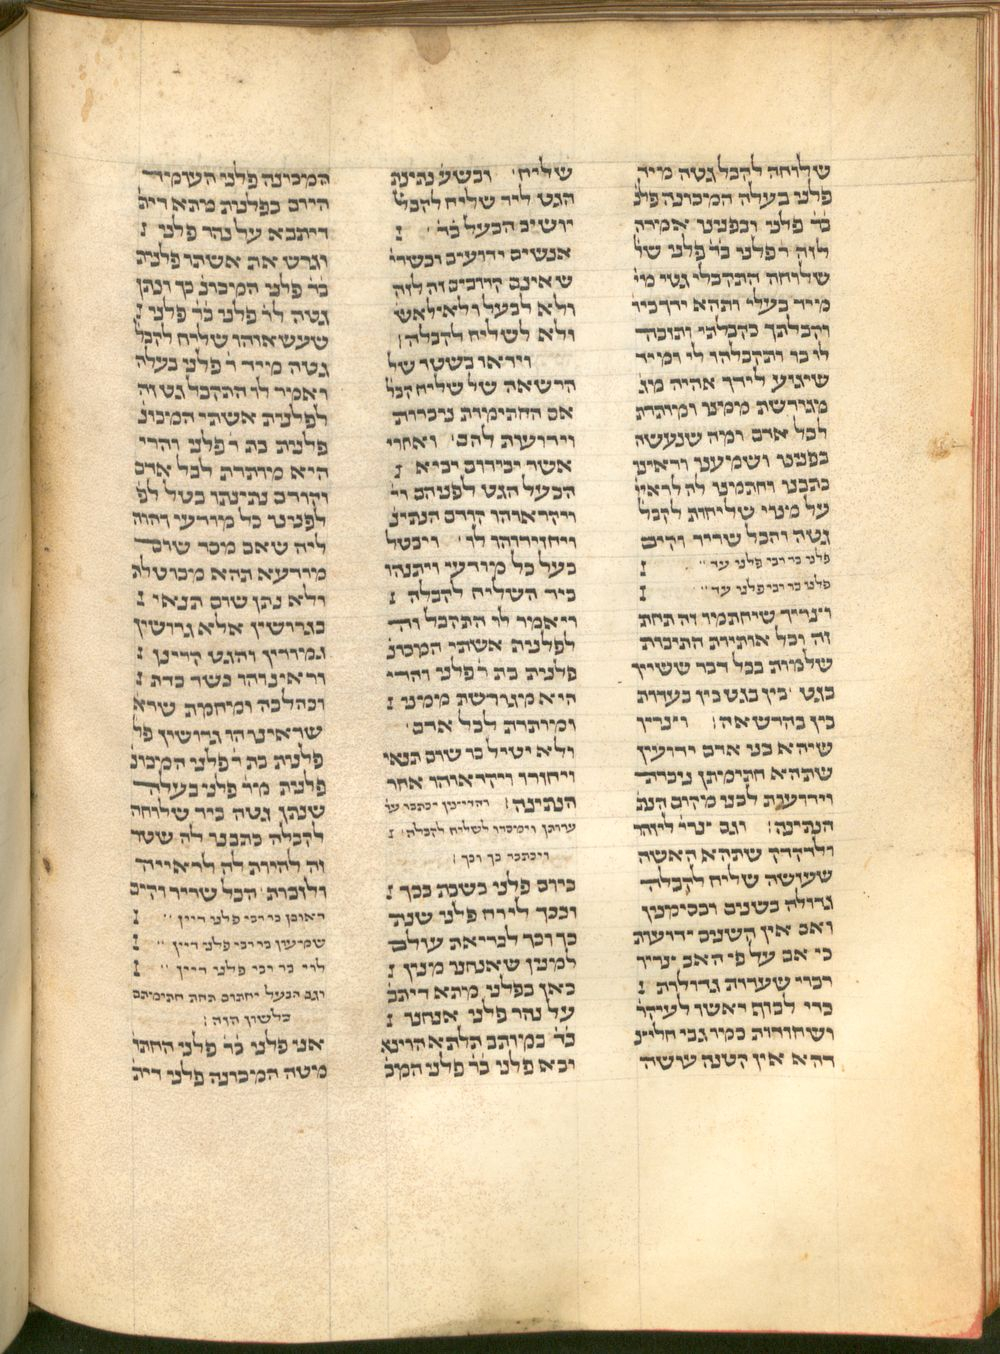 שלוחה לקבל גטה מייד
פלני בעלה המכונה פלנ
בר׳ פלני ובפנינו אמרה
לזה ר׳ פלני בר׳ פלני של
שלוחה התקבלי גטי מי׳
מייד בעלי ותהא ידך כיד
וקבלתך כקבלתי ותזכה
לי בו ותקבלהו לי ומייד
שיגיע לידך אהיה מג׳
מגורשת ממנו ומותרת
לכל אדם ומה שנעשה
בפנינו ושמענו וראינו
כתבנו וחתמנו לה לראי׳
על מנוי שליחות לקבל
גטה והכל שריר וקיים
פלני בר רבי פלני עד
פלני בר רבי פלני עד
וצריך שיחתמו זה תחת
זה וכל אותיות התיבות
שלמות בכל דבר ששייך
בגט בין בגט בין בעדות
בין בהרשאה׃ וצריך
שיהא בני אדם ידועין
שתהא חתימתן ניכרת
וידועת לבני מקום הנת
הנתינה׃ וגם צרי׳ ליזהר
ולדקדק שתהא האשה
שעושה שליח לקבלה
גדולה בשנים ובסימנין
ואם אין השנים ידועות
כי אם על פי האב צריך
דברי שערות גדולות
כדי לכוף ראשן לעיקר
ושחורות כמו גבי חליצ׳
דהא אין קטנה עושה
שליח׳ ובשע׳ נתינת
הגט ליד שליח לקבל׳
יושיב הבעל בד׳
אנשים ידועים וכשרי׳
שאינם קרובים זה לזה
ולא לבעל ולא לאש׳
ולא לשליח לקבלה׃
ויראו בשטר של
הרשאה של שליח קבל
אם החתימות ניכרות
וידועות להם׳ ואחרי
אשר יכירום יביא
הבעל הגט לפניהם וי׳
ויקראוהו קודם הנתינ׳
ויחזירוהו לו׳ ויבטל
בעל כל מודעי ויתנהו
ביד השליח לקבלה
ויאמר לו התקבל זה
לפלנית אשתי המכונ׳
פלנית בת ר׳ פלני והרי
היא מגורשת ממני
ומותרת לכל אדם׳
ולא יטיל בו שום תנאי
ויחזרו ויקראוהו אחר
הנתינה׃ והדיינין יכתבו על
ערוכן וימסרו לשליח לקבלה׃
ויכתבו כך וכך׃
ביום פלני בשבת בכך
ובכך לירח פלני שנת
כך וכך לבריאת עולם
למנין שאנחנו מנין
כאן בפלני מתא דיתב׳
על נהר פלני אנחנו
בד׳ במותב תלתא הוינא
ובא פלני בר׳ פלני המכ׳
המכונה פלני העומיד
היום בפלנית מתא דית׳
דיתבא על נהר פלני
וגרש את אשתו פלנית
בר׳ פלני המיכונ׳ כך ונתן
גטה לר׳ פלני בר׳ פלני
שעשאוהו שליח לקבל
גטה מייד ר׳ פלני בעלה
ואמר לו התקבל גט זה
לפלנית אשתי המכונ׳
פלנית בת ר׳ פלני והרי
היא מותרת לכל אדם
וקודם נתינתו בטל לפ׳
לפנינו כל מודעי דהוה
ליה שאם מסר שום
מודעא תהא מבוטלת
ולא נתן שום תנאי
בגרושין אלא גרושין
גמורין והגט קרינן
וראינוהו כשר כדת
וכהלכה ומיחמת שרא
שראינוהו גרושין פל׳
פלנית בת ר׳ פלני המיכונ׳
פלנית מר׳ פלני בעלה
שנתן גטה ביד שלוחה
לקבלה כתבנו לה שטר
זה להיות לה לראייה
ולזכות׳ הכל שריר וקים
ראובן בר רבי פלני דיין
שמעון בר רבי פלני דיין
לוי בר רבי פלני דיין
וגם הבעל יחתום תחת חתימתם
בלשון הזה׃
אני פלני בר׳ פלני החתו׳
מטה המכונה פלני דית׳